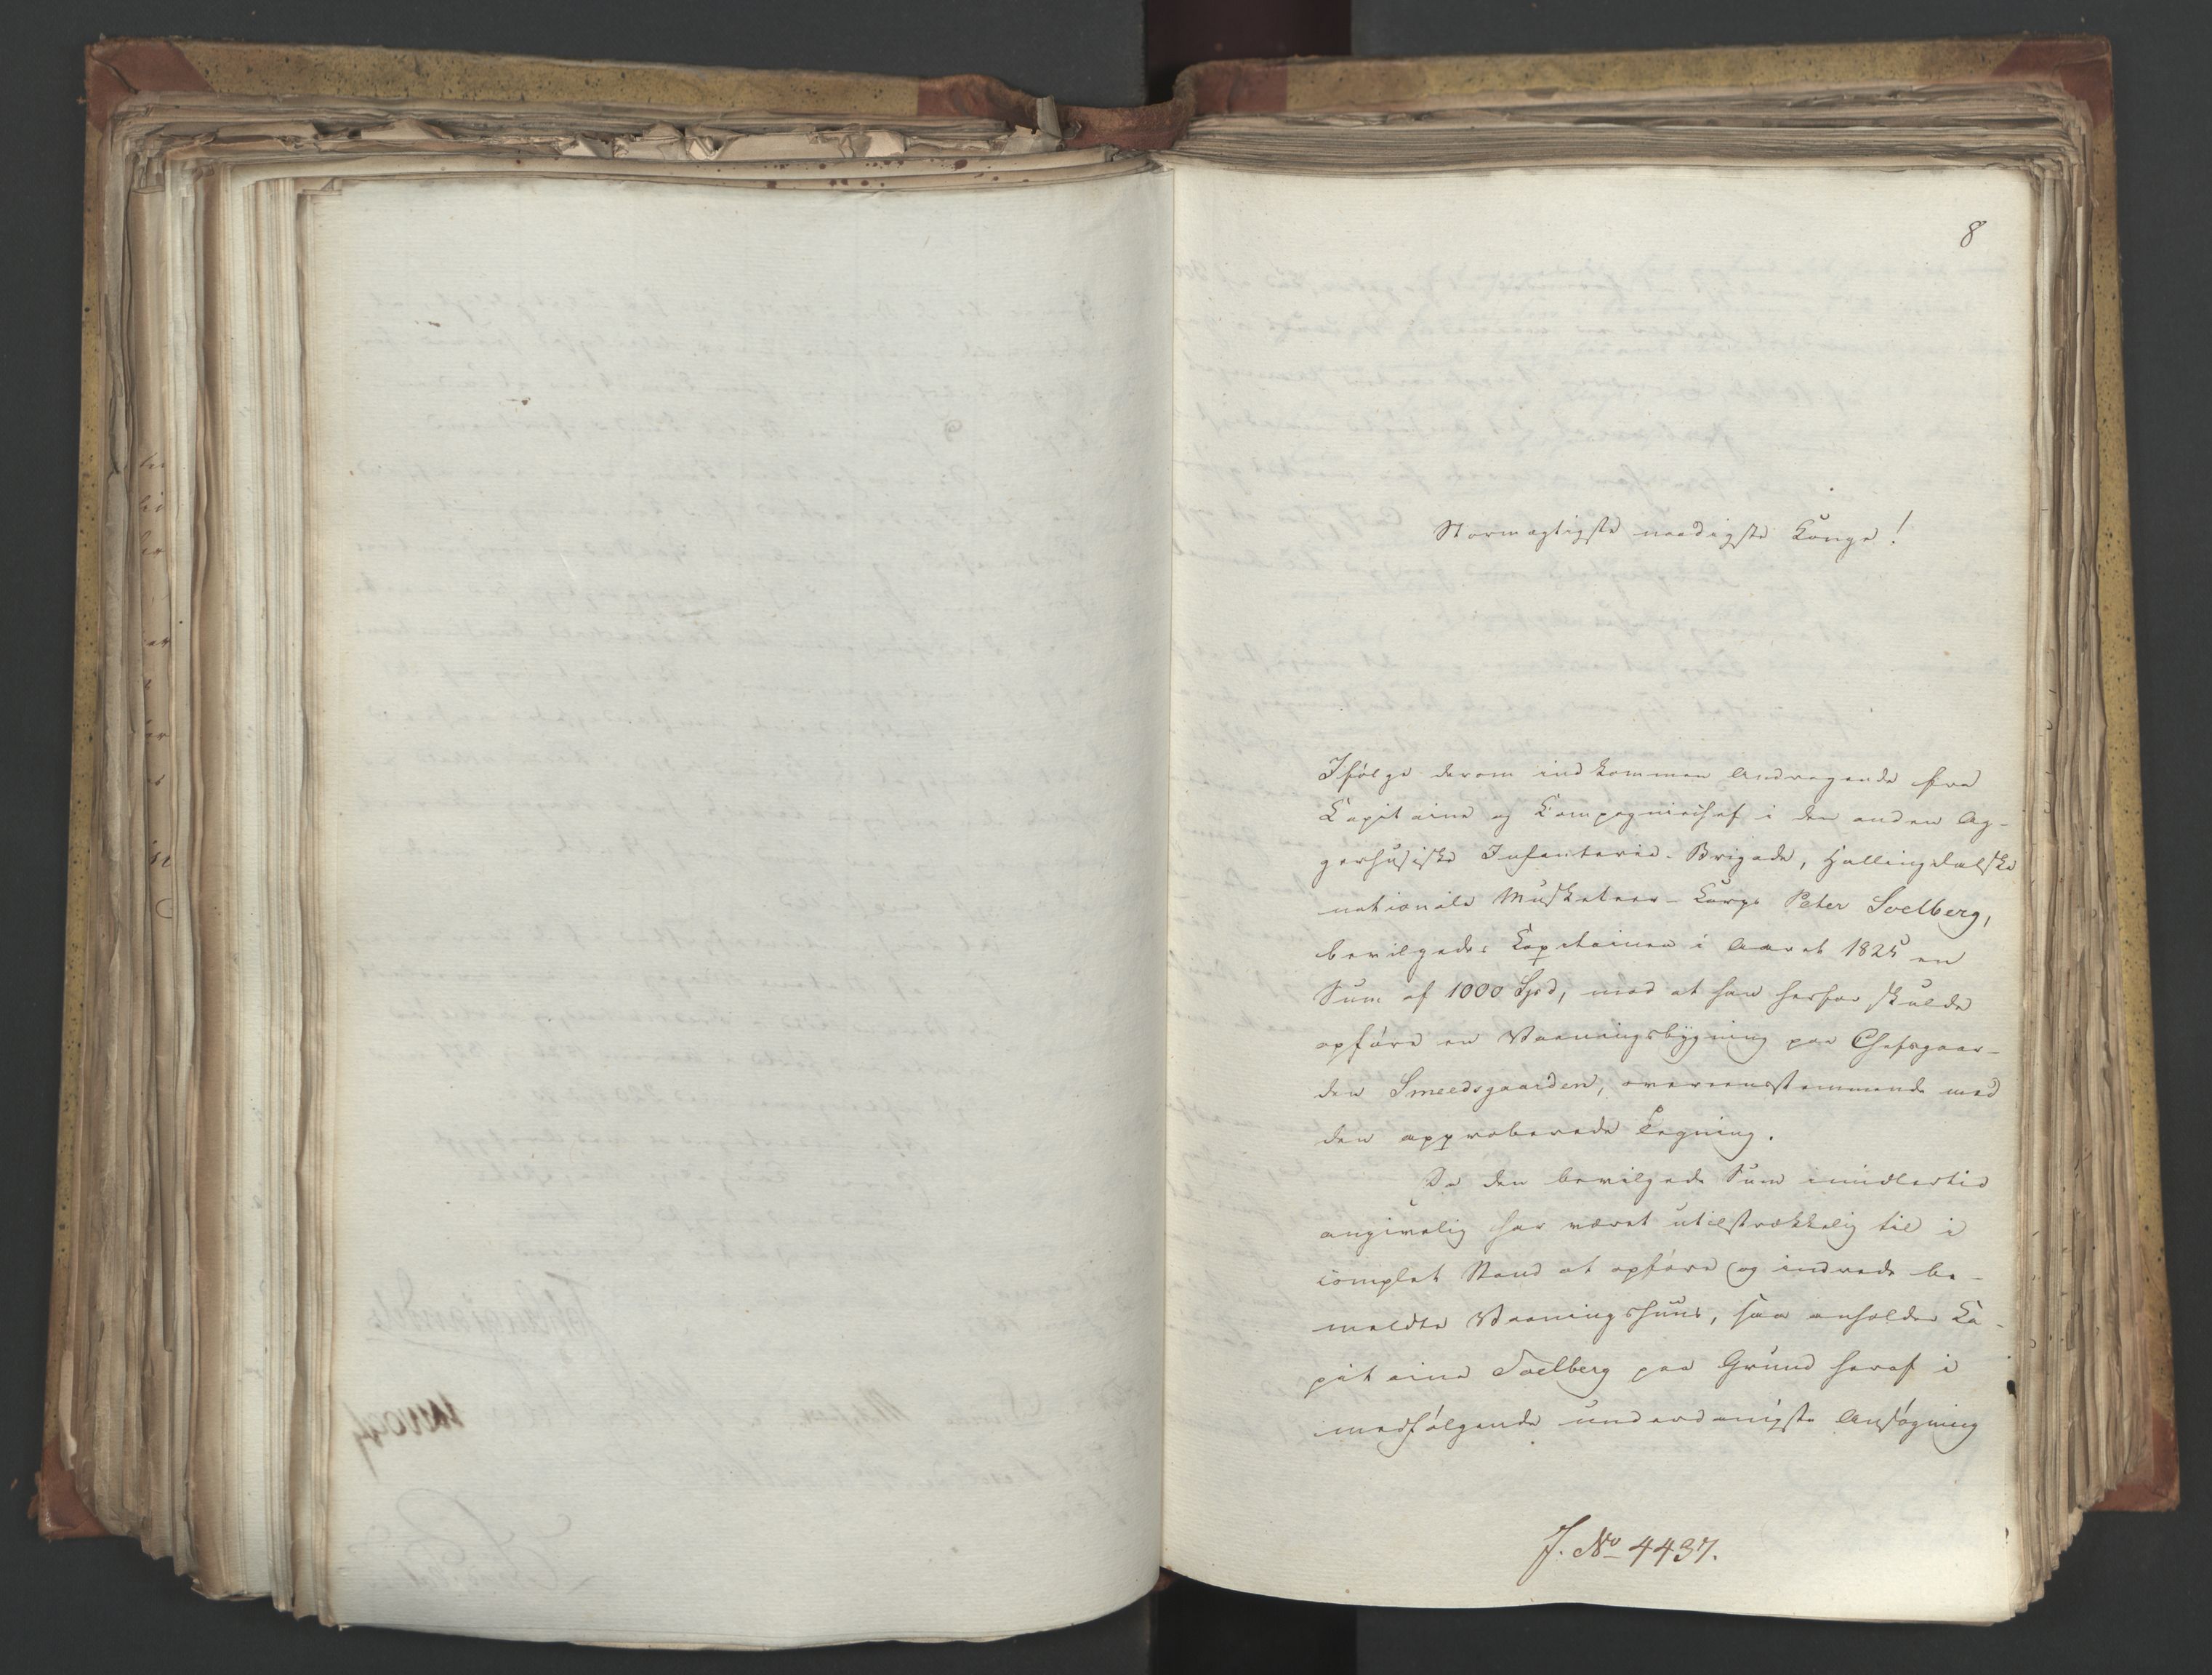 8
Stormægtigste naadigste Konge!
Ifølge derom indkommen Andragende fra
Capitaine og Kompagniechef i den anden Ag-
gerhusiske Infanterie-Brigade, Hallingdalske
nationale Musketeer-Korps Peter Soelberg,
bevilgedes Capitainen i Aaret 1825 en
Sum af 1000 Spd, mod at han herfor skulde
opføre en Vaaningsbygning paa Chefsgaar-
den Smeedsgaarden, overeensstemmende med
den approberede Tegning.
Da den bevilgede Sum imidlertid
angivelig har været utilstrækkelig til i
complet Stand at opføre og indrede be-
meldte Vaaningshuus, saa anholder Ca-
pitaine Soelberg paa Grund heraf i
medfølgende underdanigste Ansøgning
J. No 4437.